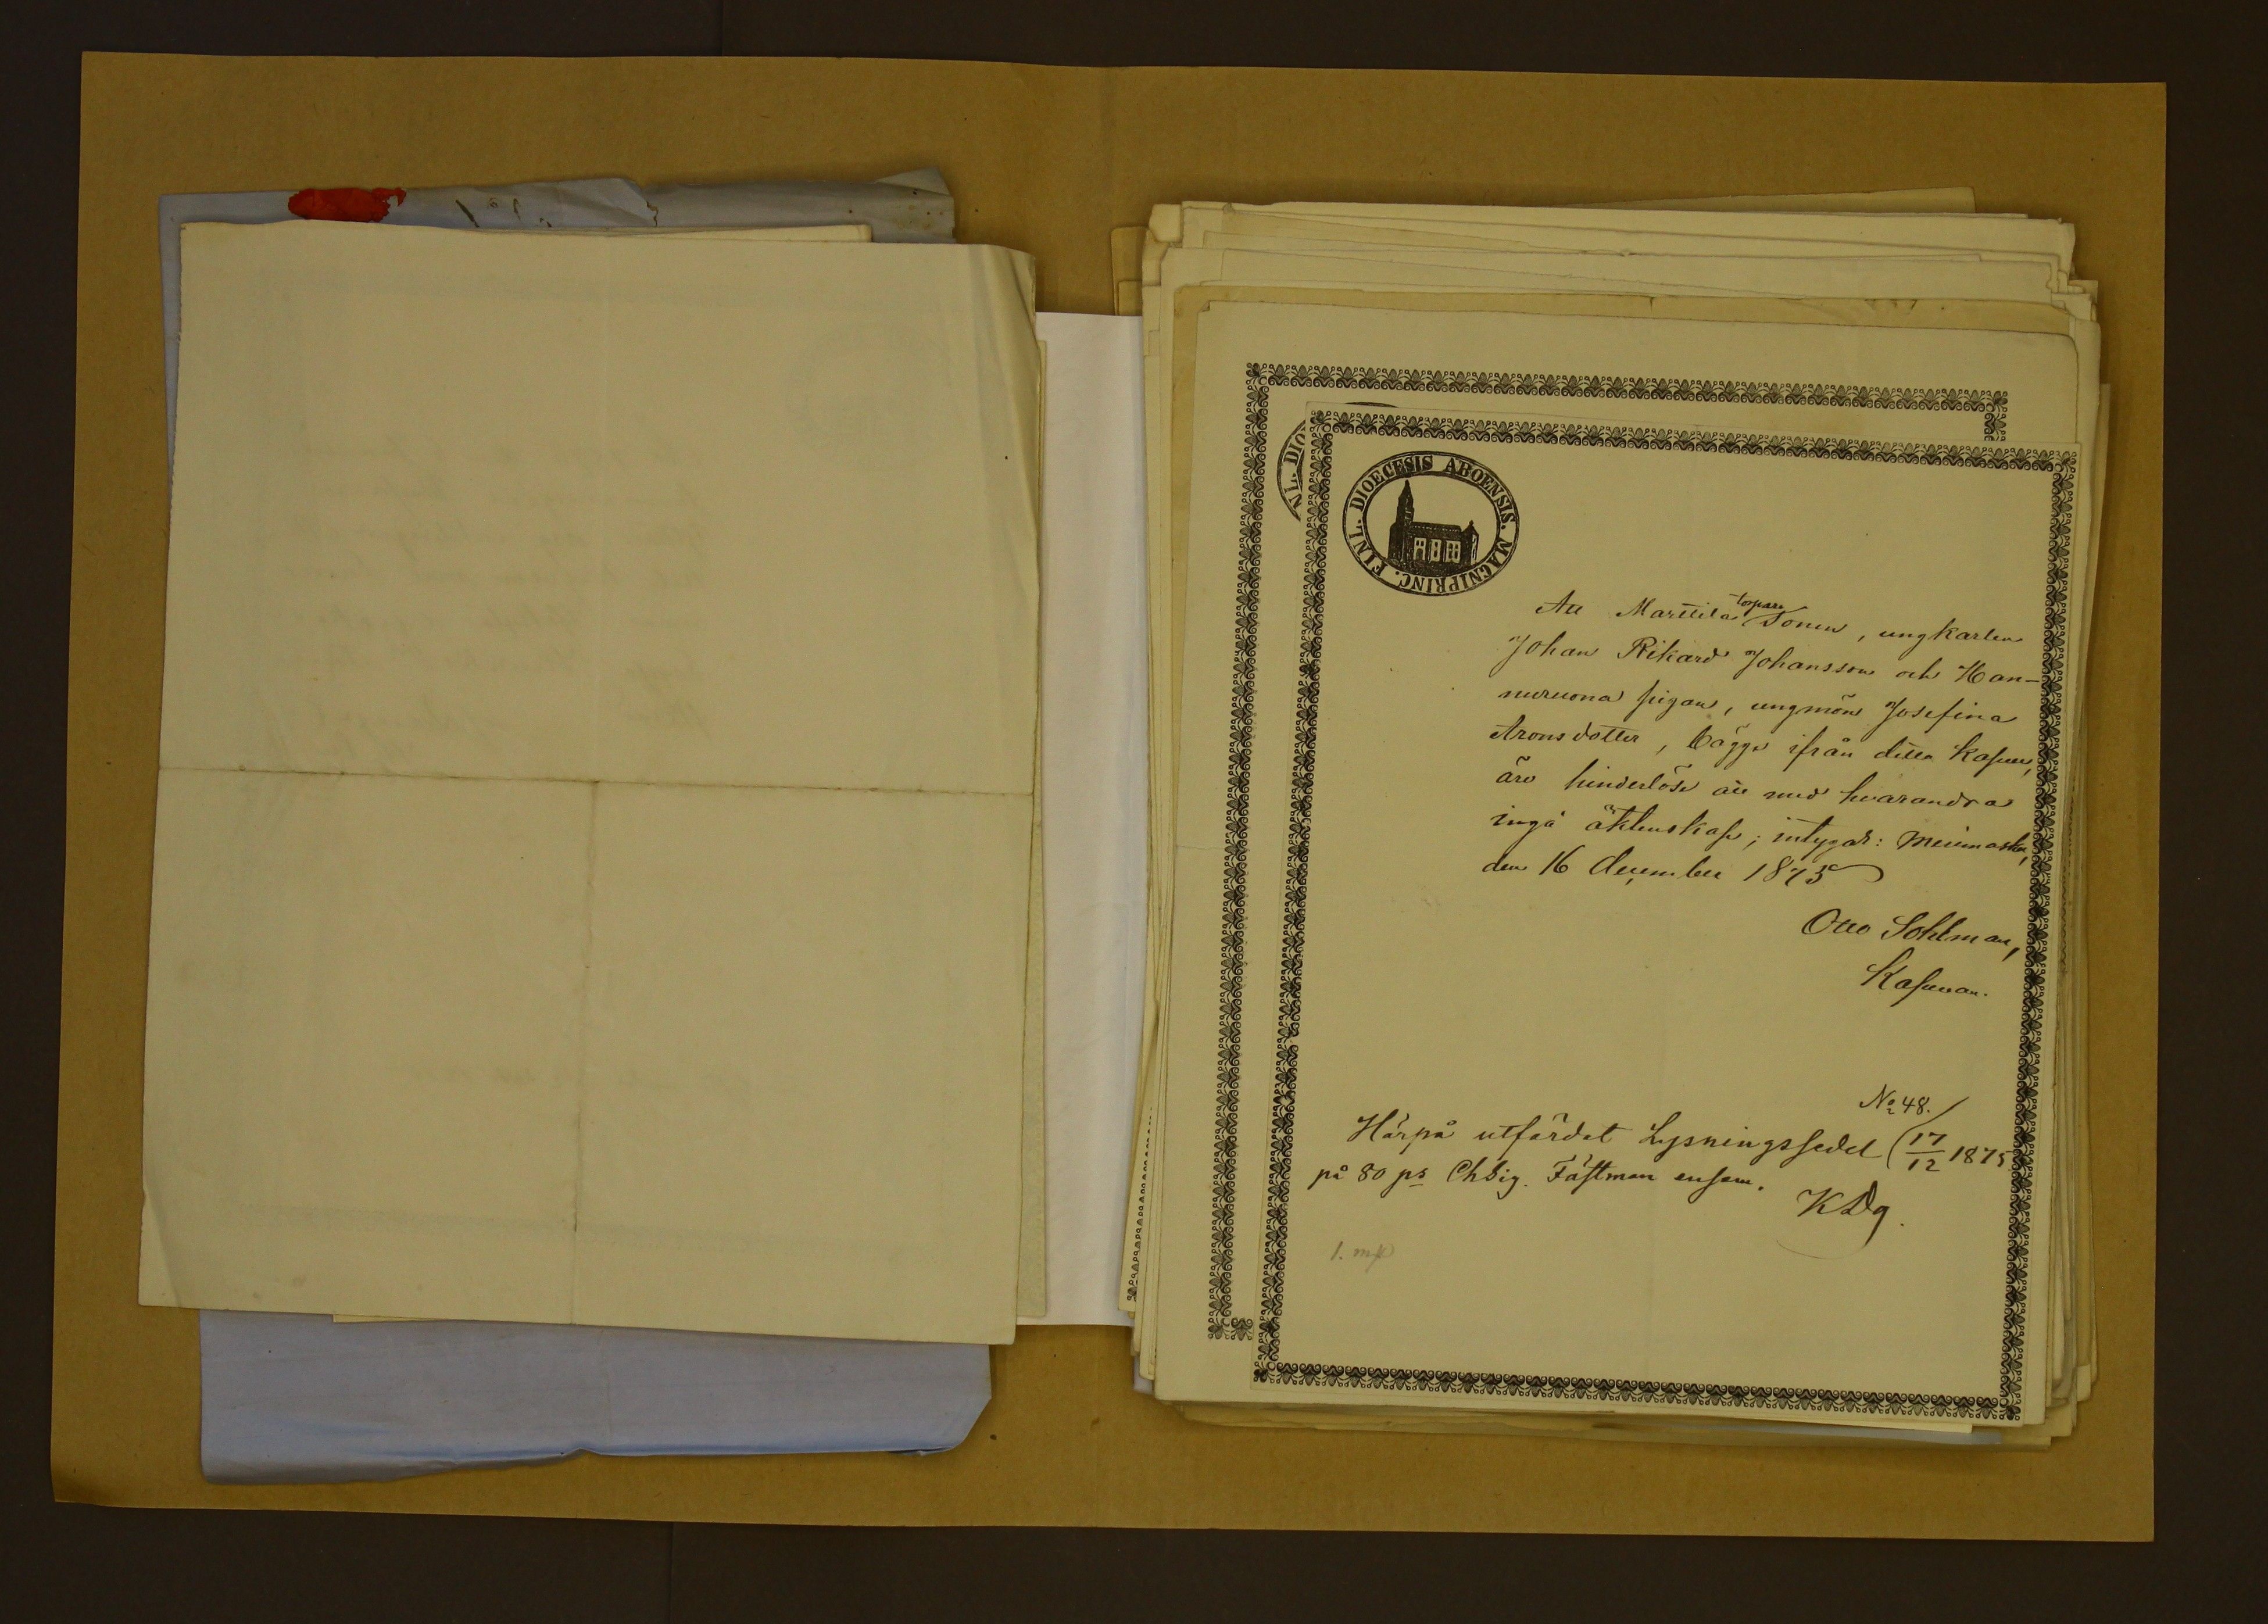 FINL. DIOECESIS ABOENSIS. MAGNIPRINC.
NL. DIO
Att Marttila torpare Sonen, ungkarlen
Johan Rikard Johansson och Han-
nuruona pigan, ungmön Josefina
Aronsdotter, bägge ifrån detta Kapell,
äro hinderlöse att med hvarandra
ingå äktenskap; intygar: Merimasku,
den 16 December 1875
Otto Sohlman,
Kapellan.
No 48.
Härpå utfärdat Lysningssedel (17/12 1875
på 80 ps Chsig. Fästman ensam.
1. mp